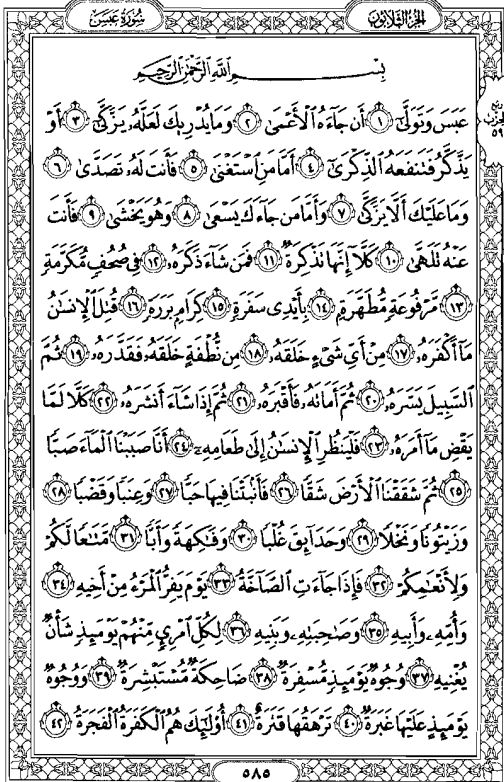 سُورَةُ عَبَسَ
الجُزْءُ الثَّلَاثُونَ
بِسْمِ اللَّهِ الرَّحْمَٰنِ الرَّحِيمِ
عَبَسَ وَتَوَلَّىٰ ١ أَن جَاءَهُ الْأَعْمَىٰ ٢ وَمَا يُدْرِيكَ لَعَلَّهُ يَزَّكَّىٰ ٣ أَوْ
يَذَّكَّرُ فَتَنفَعَهُ الذِّكْرَىٰ ٤ أَمَّا مَنِ اسْتَغْنَىٰ ٥ فَأَنتَ لَهُ تَصَدَّىٰ ٦
وَمَا عَلَيْكَ أَلَّا يَزَّكَّىٰ ٧ وَأَمَّا مَن جَاءَكَ يَسْعَىٰ ٨ وَهُوَ يَخْشَىٰ ٩ فَأَنتَ
عَنْهُ تَلَهَّىٰ ١٠ كَلَّا إِنَّهَا تَذْكِرَةٌ ١١ فَمَن شَاءَ ذَكَرَهُ ١٢ فِي صُحُفٍ مُّكَرَّمَةٍ
١٣ مَّرْفُوعَةٍ مُّطَهَّرَةٍ ١٤ بِأَيْدِي سَفَرَةٍ ١٥ كِرَامٍ بَرَرَةٍ ١٦ قُتِلَ الْإِنسَانُ
مَا أَكْفَرَهُ ١٧ مِنْ أَيِّ شَيْءٍ خَلَقَهُ ١٨ مِن نُّطْفَةٍ خَلَقَهُ فَقَدَّرَهُ ١٩ ثُمَّ
السَّبِيلَ يَسَّرَهُ ٢٠ ثُمَّ أَمَاتَهُ فَأَقْبَرَهُ ٢١ ثُمَّ إِذَا شَاءَ أَنشَرَهُ ٢٢ كَلَّا لَمَّا
يَقْضِ مَا أَمَرَهُ ٢٣ فَلْيَنظُرِ الْإِنسَانُ إِلَىٰ طَعَامِهِ ٢٤ أَنَّا صَبَبْنَا الْمَاءَ صَبًّا
٢٥ ثُمَّ شَقَقْنَا الْأَرْضَ شَقًّا ٢٦ فَأَنبَتْنَا فِيهَا حَبًّا ٢٧ وَعِنَبًا وَقَضْبًا ٢٨
وَزَيْتُونًا وَنَخْلًا ٢٩ وَحَدَائِقَ غُلْبًا ٣٠ وَفَاكِهَةً وَأَبًّا ٣١ مَّتَاعًا لَّكُمْ
وَلِأَنْعَامِكُمْ ٣٢ فَإِذَا جَاءَتِ الصَّاخَّةُ ٣٣ يَوْمَ يَفِرُّ الْمَرْءُ مِنْ أَخِيهِ ٣٤
وَأُمِّهِ وَأَبِيهِ ٣٥ وَصَاحِبَتِهِ وَبَنِيهِ ٣٦ لِكُلِّ امْرِئٍ مِّنْهُمْ يَوْمَئِذٍ شَأْنٌ
يُغْنِيهِ ٣٧ وُجُوهٌ يَوْمَئِذٍ مُّسْفِرَةٌ ٣٨ ضَاحِكَةٌ مُّسْتَبْشِرَةٌ ٣٩ وَوُجُوهٌ
يَوْمَئِذٍ عَلَيْهَا غَبَرَةٌ ٤٠ تَرْهَقُهَا قَتَرَةٌ ٤١ أُولَٰئِكَ هُمُ الْكَفَرَةُ الْفَجَرَةُ ٤٢
٥٨٥